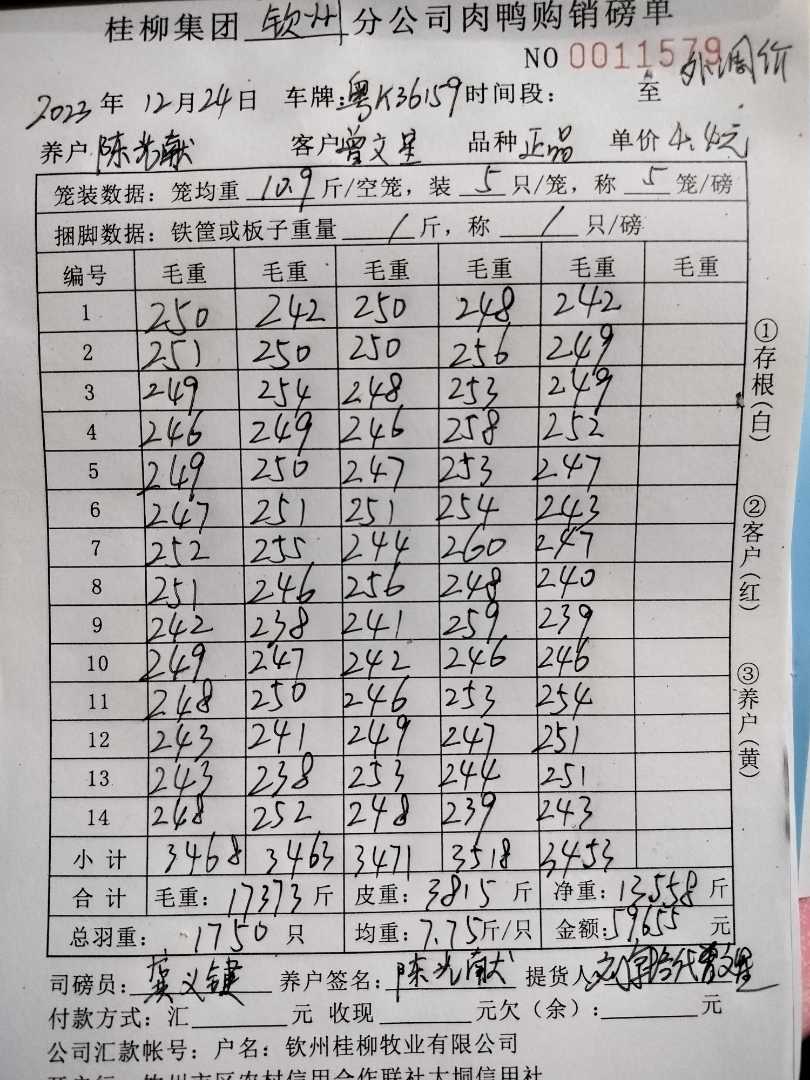 桂柳集团 钦州 分公司肉鸭购销磅单
NO 0011579 外调价
2023 年 12 月 24 日 车牌:粤K36159 时间段: 至
养户 陈光献 客户 曾文星 品种 正品 单价 4.4元
笼装数据: 笼均重 10.9 斤/空笼，装 5 只/笼，称 5 笼/磅
捆脚数据: 铁筐或板子重量 / 斤，称 / 只/磅
编号 毛重 毛重 毛重 毛重 毛重 毛重
1 250 242 250 248 242
2 251 250 250 256 249
3 249 254 248 253 249
4 246 249 246 258 252
5 249 250 247 253 247
6 247 251 251 254 243
7 252 255 244 260 247
8 251 246 256 248 240
9 242 238 241 259 239
10 249 247 242 246 246
11 248 250 246 253 254
12 243 241 249 247 251
13 243 238 253 244 251
14 248 252 248 239 243
小计 3468 3463 3471 3518 3453
合计 毛重: 17373 斤 皮重: 3815 斤 净重: 13558 斤
总羽重: 1750 只 均重: 7.75 斤/只 金额: 59655 元
司磅员: 龚义键 养户签名: 陈光献 提货人 代曾文星
付款方式: 汇 元 收现 元欠（余）: 元
公司汇款帐号: 户名: 钦州桂柳牧业有限公司
开户行: 钦州市区农村信用合作联社大垌信用社
①存根(白)
②客户(红)
③养户(黄)